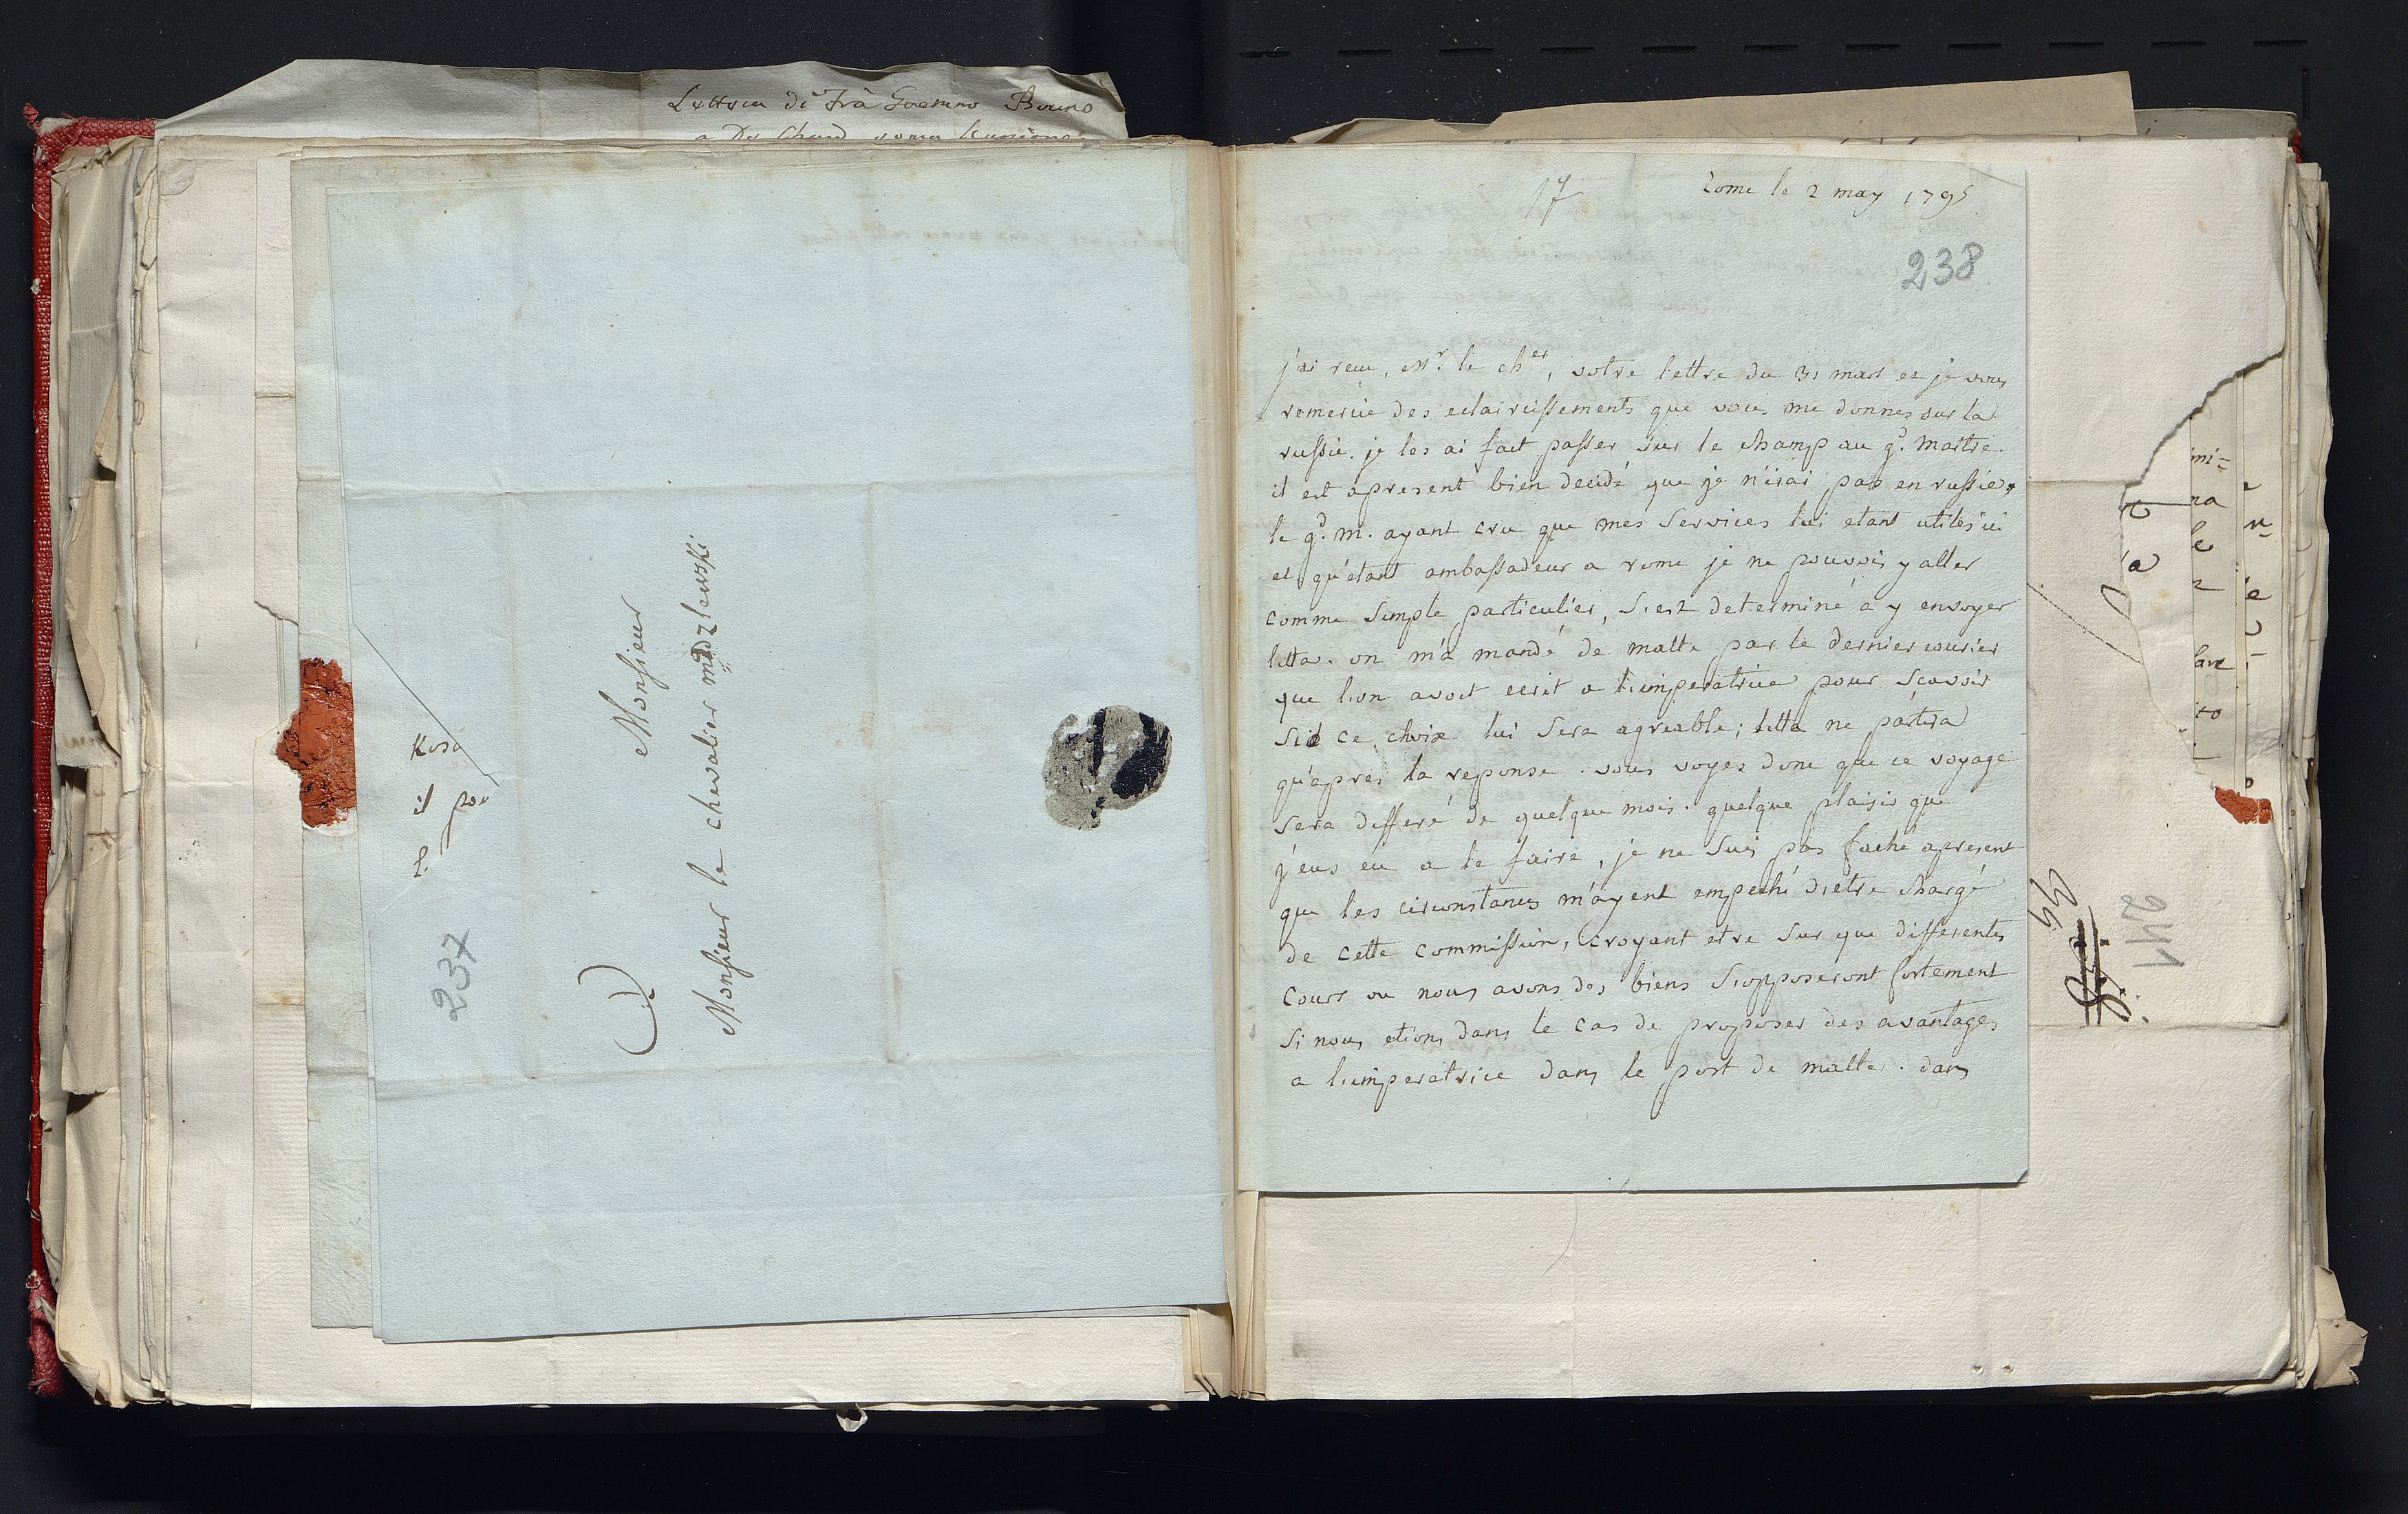 Lettera di Frà Gaetano Bruno
Monsieur
Monsieur le chevalier miedzlewski
237
il pou
17
Rome le 2 may 1795
238
j'ai reçu, Mr. le cher, votre lettre du 31 mars et je vous
remercie des eclaircissements que vous me donnes sur la
russie. je les ai fait passer sur le champ au gd. maitre.
il est apresent bien decidé que je n'irai pas en russie,
le gd. m. ayant cru que mes services lui etant utiles ici
et qu'etant ambassadeur a rome je ne pouvois y aller
comme simple particulier, s'est determiné a y envoyer
litta. on m'a mandé de malte par le dernier courier
que l'on avoit ecrit a l'imperatrice pour sçavoir
si ce choix lui sera agreable; litta ne partira
qu'apres la reponse. vous voyes donc que ce voyage
sera differé de quelque mois. quelque plaisir que
j'eus eu a le faire, je ne suis pas faché apresent
que les circonstances m'ayent empeché d'etre chargé
de cette commission, croyant etre sur que differentes
cours ou nous avons des biens s'opposeront fortement
si nous etions dans le cas de proposer des avantages
a l'imperatrice dans le port de malte. dans
241